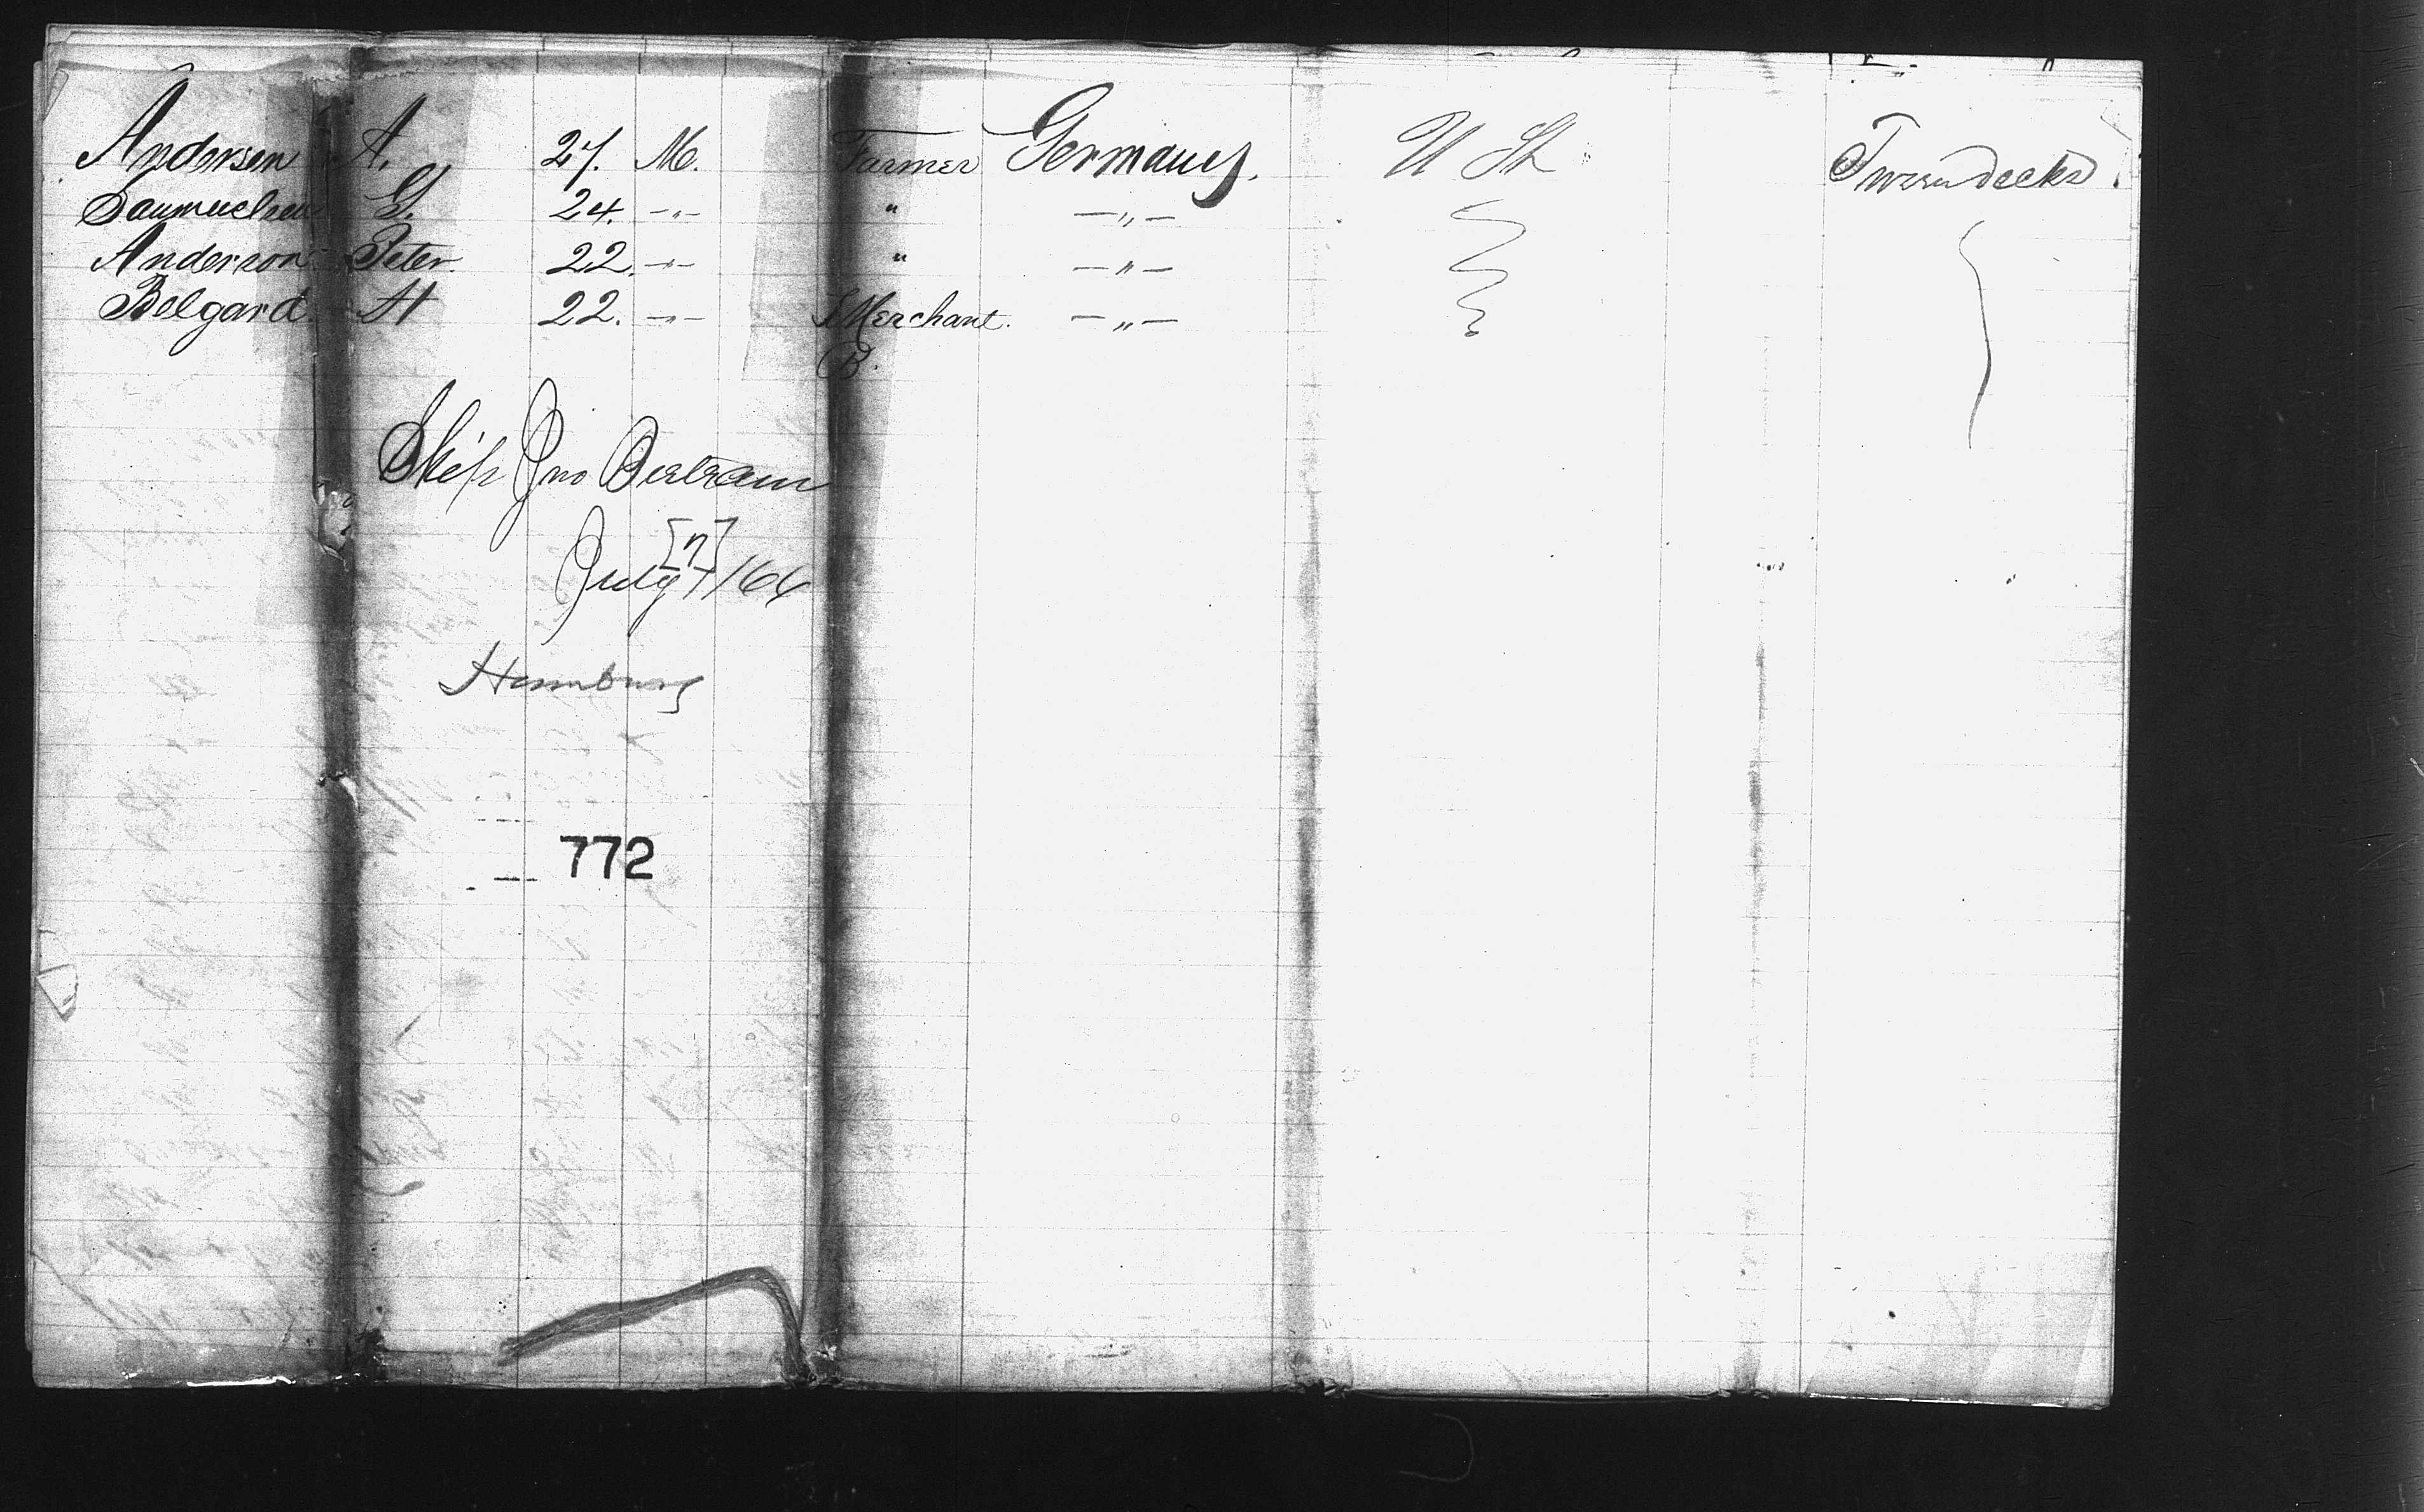 Andersen A. 27. M. Farmer Germany. U St Tweendecks.
Saumuelsen G. 24. -"- " -"-
Anderson Peter. 22. -"- " -"-
Belgard. H 22. -"- Merchant. -"-
B.
Ship Jno Bertram
[7]
July 7/66
Hamburg
772